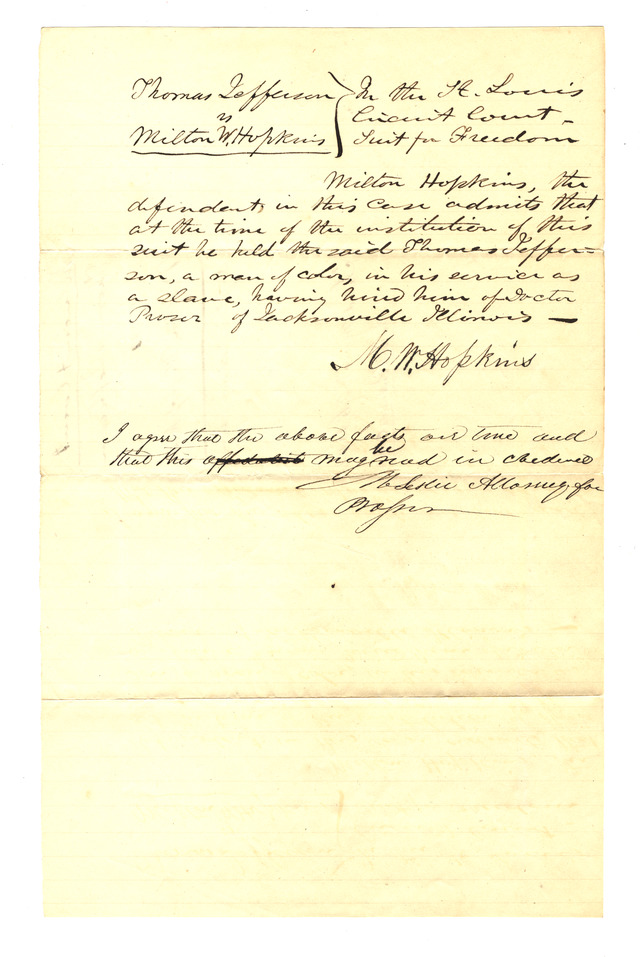 Thomas Jefferson } In the St. Louis
vs } Circuit Court –
Milton W. Hopkins } Suit for Freedom
Milton Hopkins, the
defendent, in this case admits that
at the time of the institution of this
suit he held the said Thomas Jeffer-
son, a man of color, in his service as
a slave, having hired him of Doctor
Proser of Jacksonville Illinois —
M. W. Hopkins
I agree that the above facts are true and
that this affidavit may be read in evidence
Leslie Attorney for
Prosser